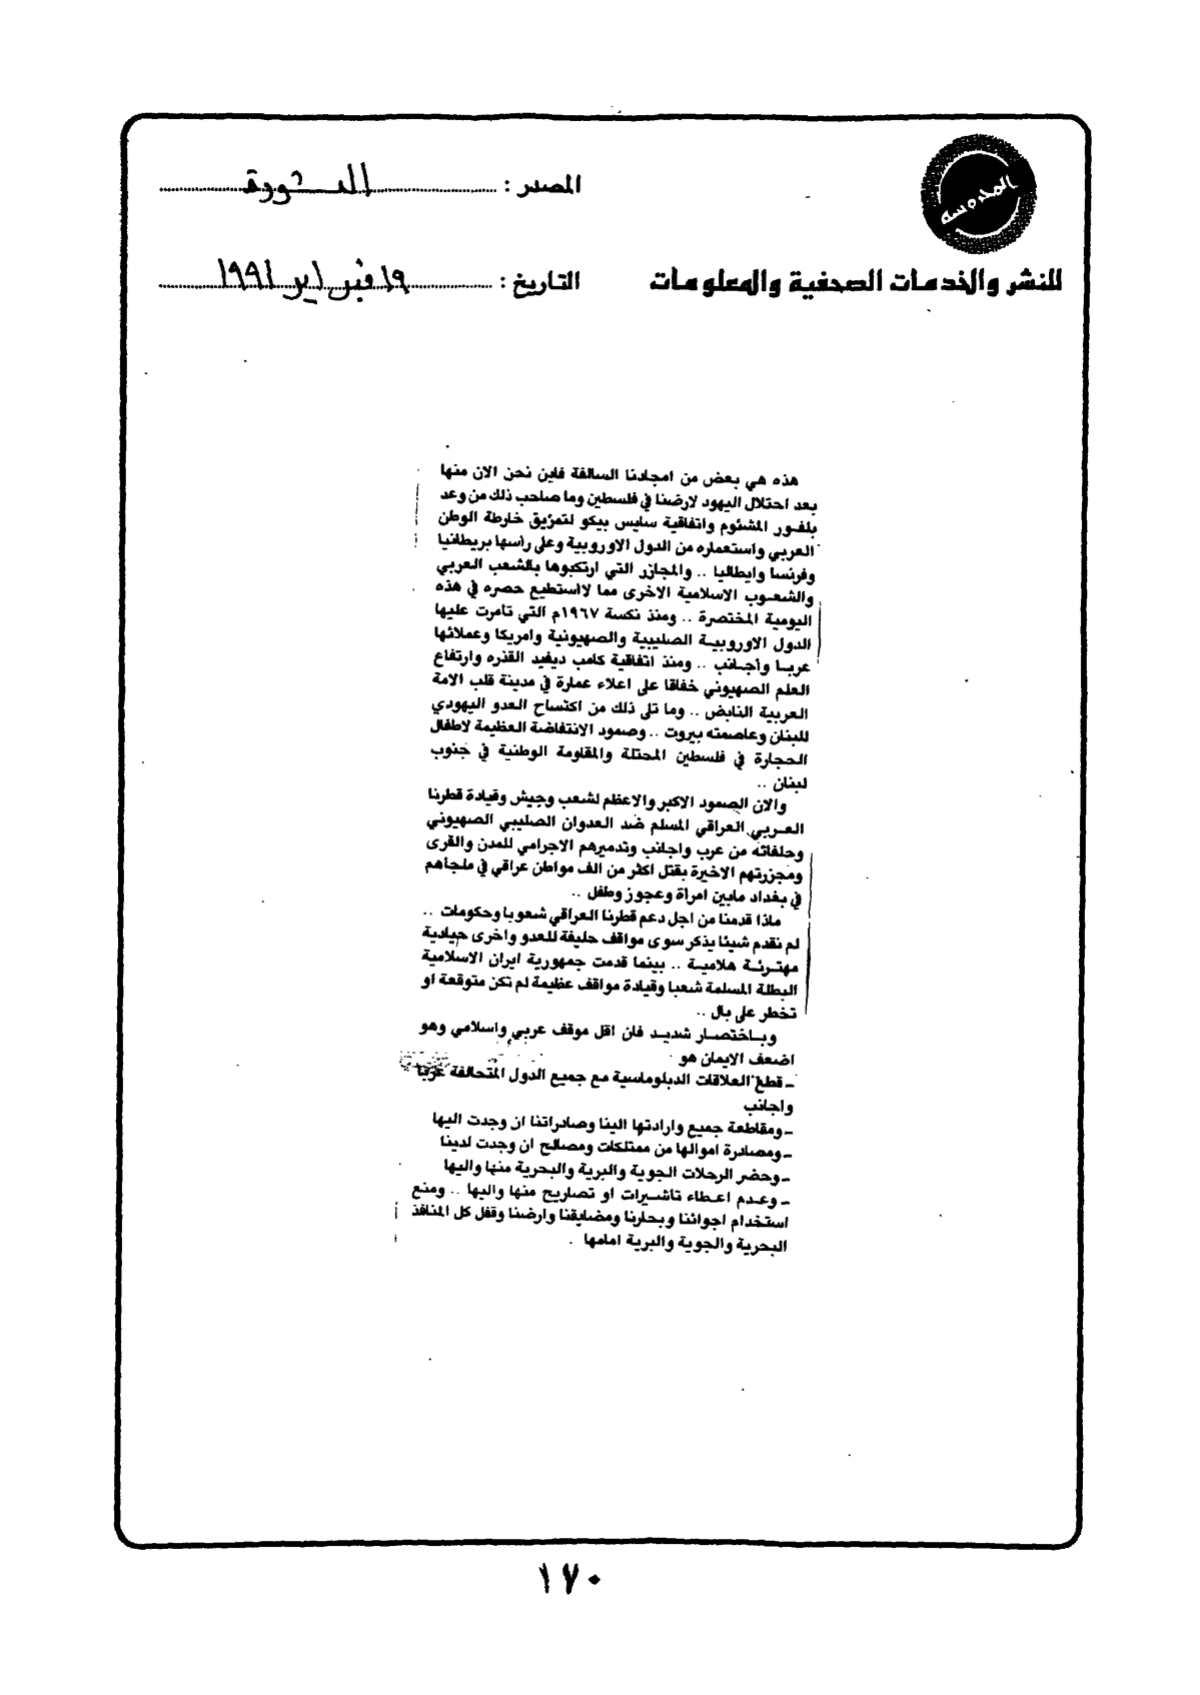 المصدر : الثورة
المدرسه
التاريخ : ١٩ فبراير ١٩٩١
للنشر والخدمات الصحفية والمعلومات
هذه هي بعض من امجادنا السالفة فاين نحن الان منها
بعد احتلال اليهود لارضنا في فلسطين وما صاحب ذلك من وعد
بلفور المشئوم واتفاقية سايس بيكو لتمزيق خارطة الوطن
العربي واستعماره من الدول الاوروبية وعلى راسها بريطانيا
وفرنسا وايطاليا .. والمجازر التي ارتكبوها بالشعب العربي
والشعوب الاسلامية الاخرى مما لااستطيع حصره في هذه
اليومية المختصرة .. ومنذ نكسة ١٩٦٧م التي تامرت عليها
الدول الاوروبية الصليبية والصهيونية وامريكا وعملائها
عربا وأجانب .. ومنذ اتفاقية كامب ديفيد القذره وارتفاع
العلم الصهيوني خفاقا على اعلاء عمارة في مدينة قلب الامة
العربية النابض .. وما تلى ذلك من اكتساح العدو اليهودي
للبنان وعاصمته بيروت .. وصمود الانتفاضة العظيمة لاطفال
الحجارة في فلسطين المحتلة والمقاومة الوطنية في جنوب
لبنان ..
والان الصمود الاكبر والاعظم لشعب وجيش وقيادة قطرنا
العربي العراقي المسلم ضد العدوان الصليبي الصهيوني
وحلفائه من عرب واجانب وتدميرهم الاجرامي للمدن والقرى
ومجزرتهم الاخيرة بقتل اكثر من الف مواطن عراقي في ملجاهم
في بغداد مابين امرأة وعجوز وطفل ..
ماذا قدمنا من اجل دعم قطرنا العراقي شعوبا وحكومات ..
لم نقدم شيئا يذكر سوى مواقف حليفة للعدو واخرى حيادية
مهترئة هلامية .. بينما قدمت جمهورية ايران الاسلامية
البطلة المسلمة شعبا وقيادة مواقف عظيمة لم تكن متوقعة او
تخطر على بال ..
وباختصار شديد فان اقل موقف عربي واسلامي وهو
اضعف الايمان هو
ـ قطع العلاقات الدبلوماسية مع جميع الدول المتحالفة عربا
واجانب
ـ ومقاطعة جميع وارادتها الينا وصادراتنا ان وجدت اليها
ـ ومصادرة اموالها من ممتلكات ومصالح ان وجدت لدينا
ـ وحضر الرحلات الجوية والبرية والبحرية منها واليها
ـ وعدم اعطاء تاشيرات او تصاريح منها واليها .. ومنع
استخدام اجوائنا وبحارنا ومضايقنا وارضنا وقفل كل المنافذ
البحرية والجوية والبرية امامها .
١٧٠